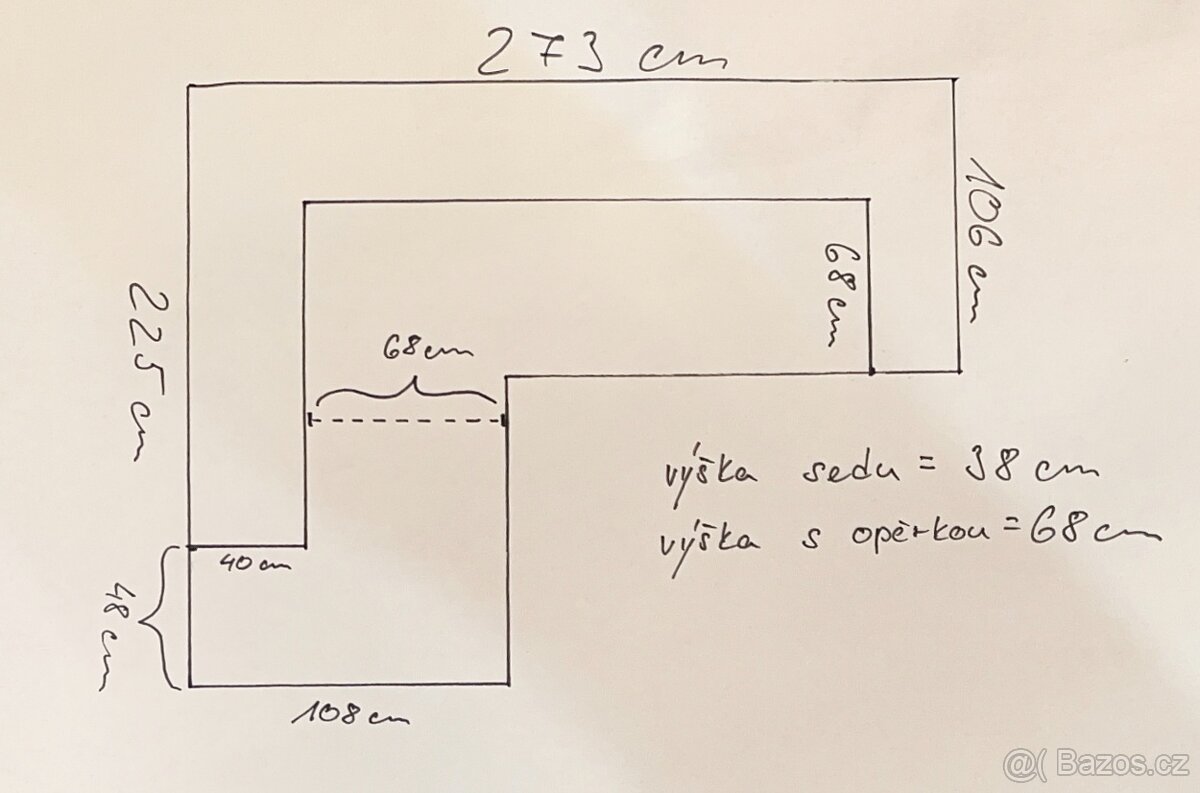 273 cm
106 cm
68 cm
68 cm
225 cm
výška sedu = 38 cm
výška s opěrkou = 68 cm
40 cm
48 cm
108 cm
@( Bazos.cz